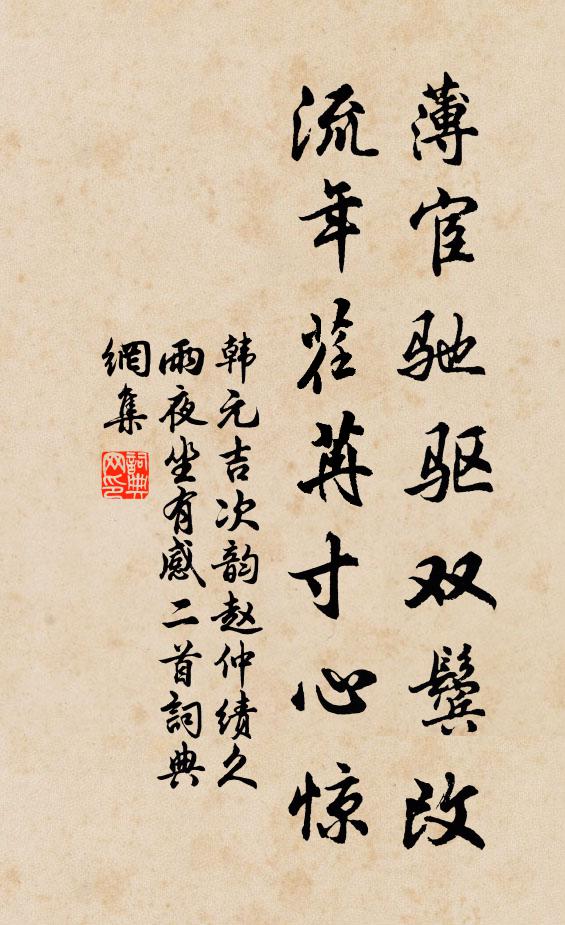 薄宦驰驱双鬓改
流年荏苒寸心惊
韩元吉次韵赵仲绩久
雨夜坐有感二首詞典
網集
詞典网印